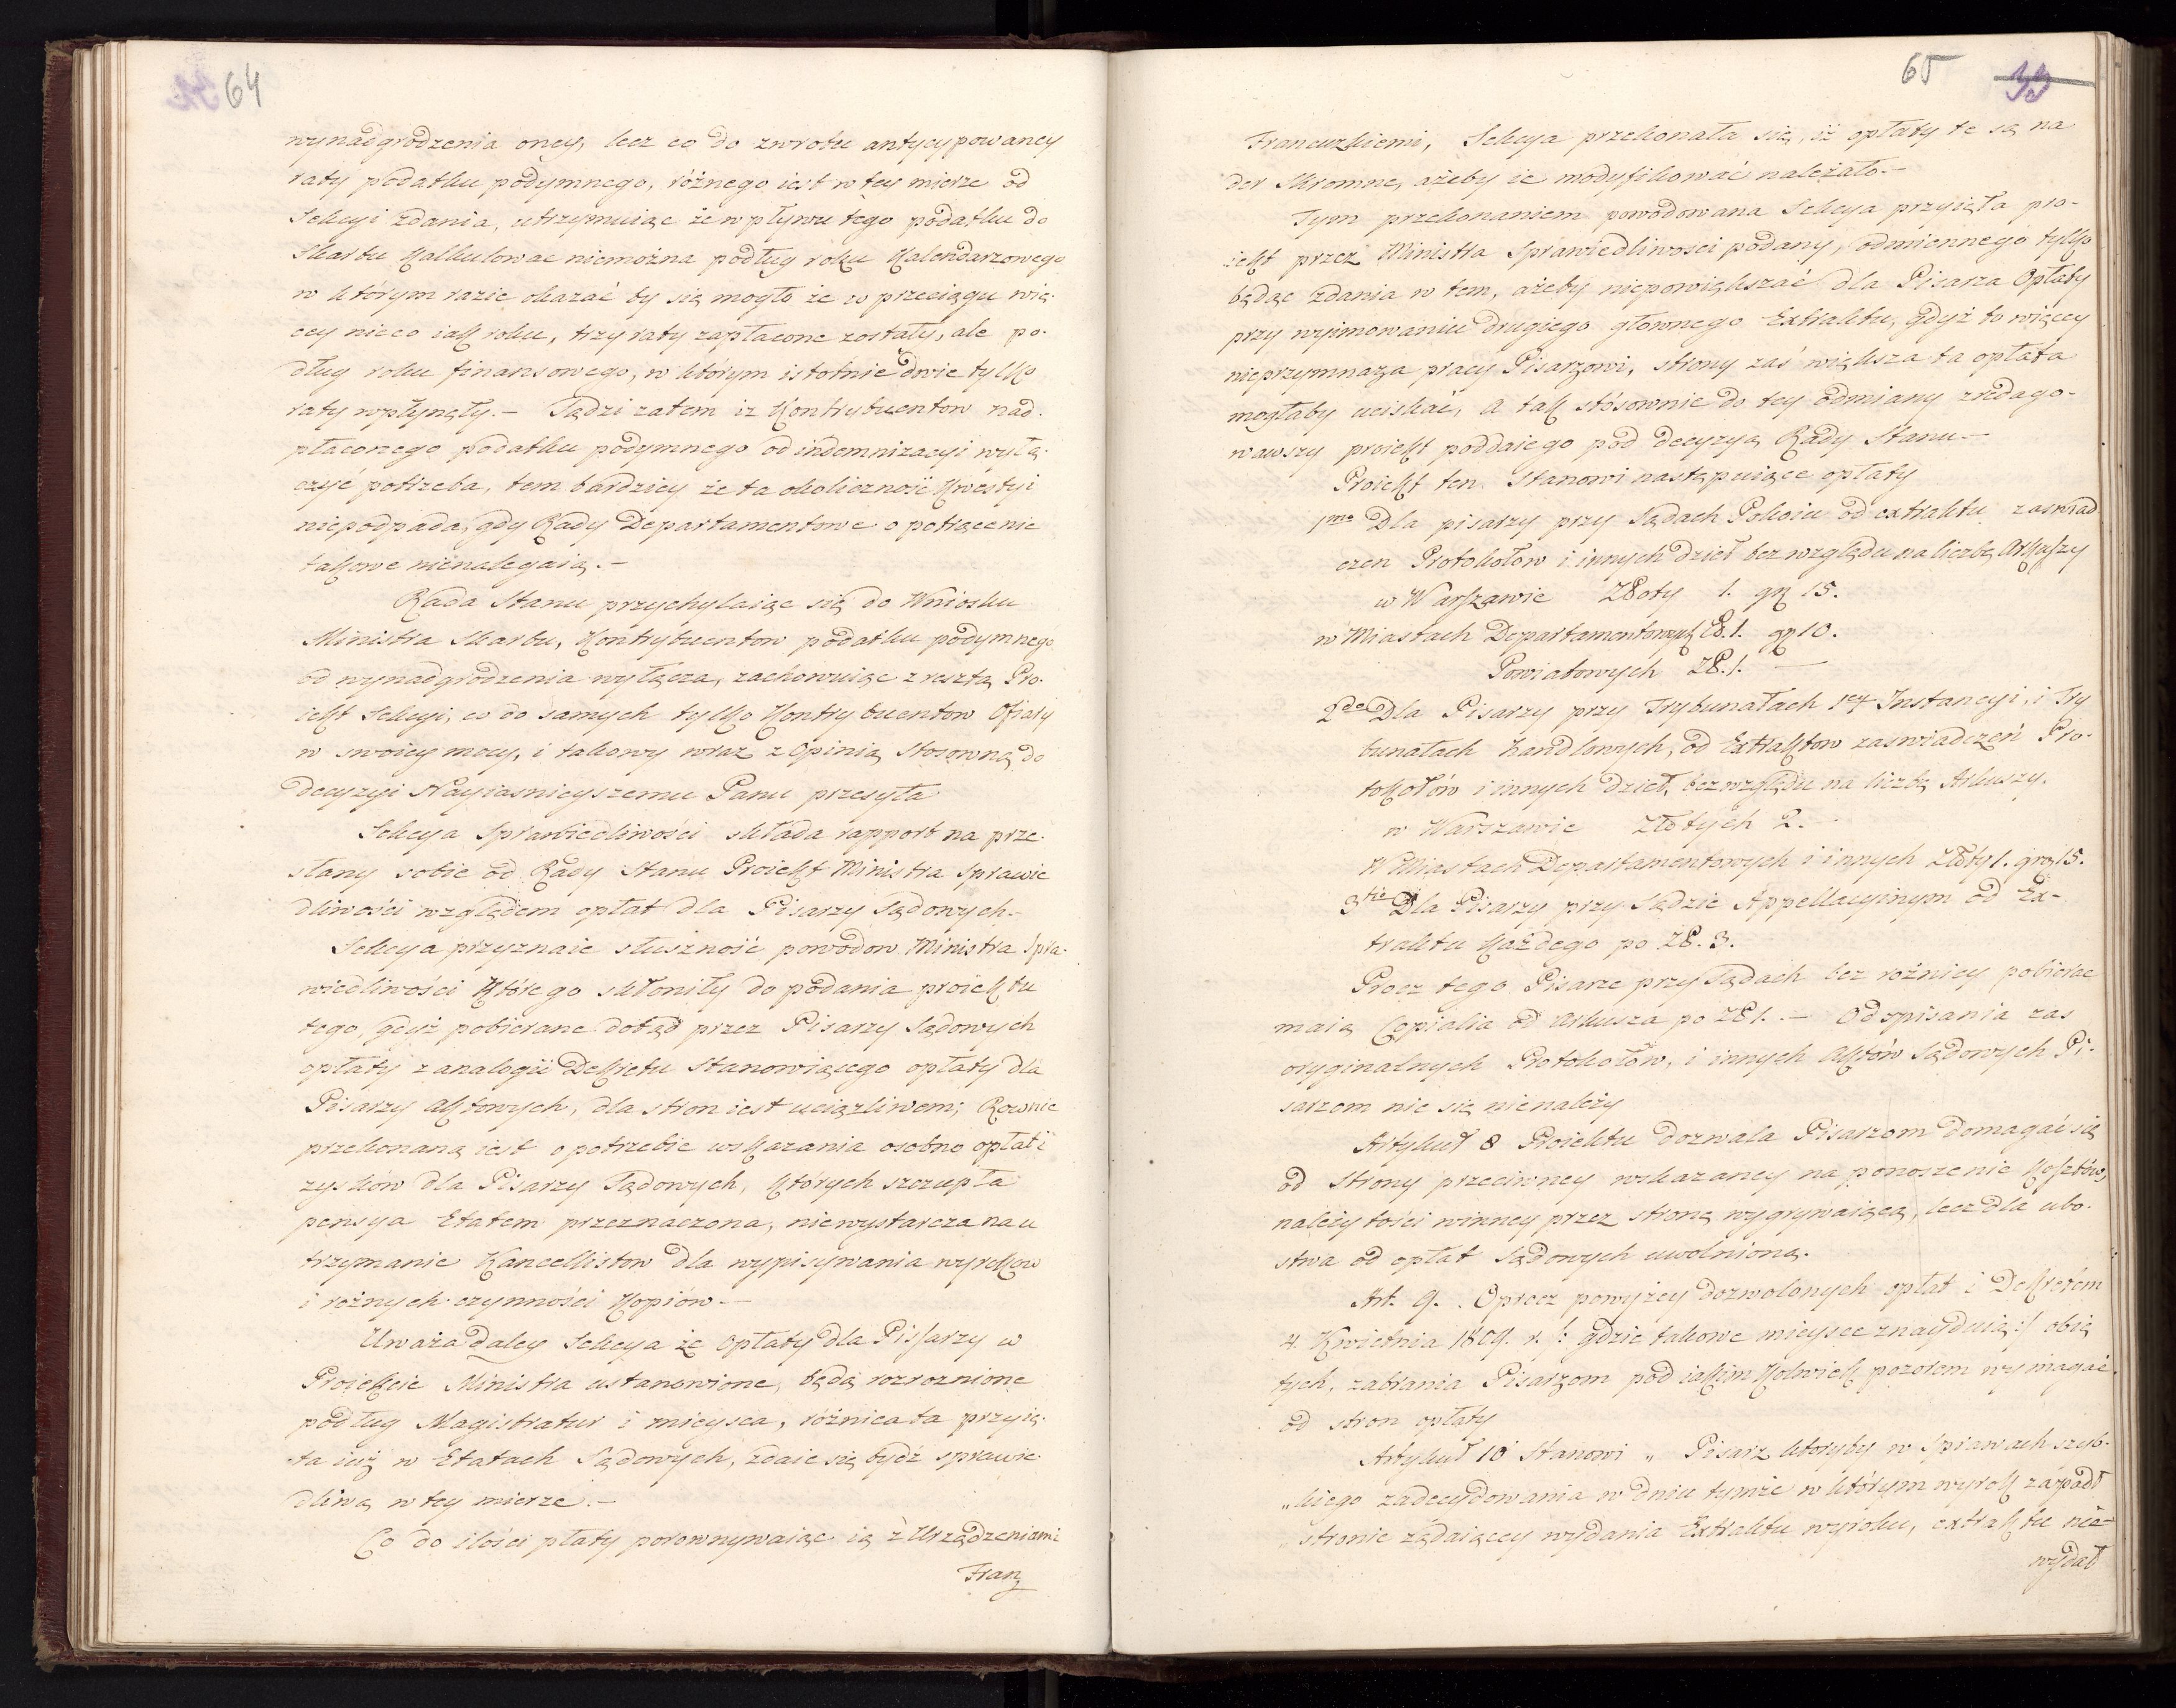 64
wynadgrodzenia oney, lecz co do zwrotu antycypowaney
raty podatku podymnego, różnego iest w tey mierze od
Sekcyi zdania, utrzymuiąc że wpływu tego podatku do
Skarbu kalkulowac niemożna podług roku Kalendarzowego
w którym razie okazać by się mogło że w przeciągu wię-
cey nieco iak roku, trzy raty zapłacone zostały, ale po-
dług roku finansowego, w którym istotnie dwie tylko
raty wpłynęły.- Sądzi zatem iz Kontrybuentow nad-
płaconego podatku podymnego od indemnizacyi wyłą-
czyć potrzeba, tem bardziey że ta okoliczność kwestyi
niepodpada, gdy Rady Departamentowe o potrącenie
takowe nienalegaią.-
Rada Stanu przychylaiąc się do Wniosku
Ministra Skarbu, Kontrybuentow podatku podymnego
od wynadgrodzenia wyłącza, zachowuiąc z resztą Pro-
iekt Sekcyi, co do samych tylko Kontrybuentow Ofiary
w swoiey mocy, i takowy wraz z Opinią stosowną do
decyzyi Nayiasnieyszemu Panu przesyła
Sekcya Sprawiedliwości składa rapport na prze-
słany sobie od Rady Stanu Proiekt Ministra Sprawie
dliwości względem opłat dla Pisarzy Sądowych.-
Sekcya przyznaie słuszność powodow Ministra Spra-
wiedliwości którego skłoniły do podania proiektu
tego, gdyż pobierane dotąd przez Pisarzy Sądowych
opłaty z analogii Dekretu stanowiącego opłaty dla
Pisarzy aktowych, dla stron iest uciązliwem; Rownie
przekonaną iest o potrzebie wskazania osobno opłat i
zysków dla Pisarzy Sądowych, których szczupła
pensya Etatem przeznaczona, niewystarcza na u
trzymanie Kancellistow dla wypisywania wyrokow
i rożnych czynności kopiow.-
Uważa daley Sekcya że Opłaty dla Pissarzy w
Proiekcie Ministra ustanowione, będą rozroznione
podług Magistratur i mieysca, różnica ta przyię-
ta iuż w Etatach Sądowych, zdaie się bydź sprawie-
dliwą w tey mierze.-
Co do ilości płaty porownywaiąc ią z Urządzeniami
Franz
65 33
Francuzkiemi, Sekcya przekonała się, iż opłaty te są na
der skromne, ażeby ie modyfikować należało.-
Tym przekonaniem powodowana Sekcya przyięła pro-
iekt przez Ministra Sprawiedliwosci podany, odmiennego tylko
będąc zdania w tem, ażeby niepowiększać dla Pisarza Opłaty
przy wyimowaniu drugiego głownego Extraktu, gdyż to więcey
nieprzymnaża pracy Pisarzowi, strony zaś większa ta opłata
mogłaby uciskać, a tak stósownie do tey odmiany zredago-
wawszy proiekt poddaie go pod decyzyą Rady Stanu.-
Proiekt ten stanowi następuiące opłaty
1mo Dla pisarzy przy Sądach Pokoiu od extraktu zaswiad
czen Protokołow i innych dzieł bez względu na liczbę Arkuszy
w Warszawie Złoty 1. gr 15.
w Miastach Departamentowych Zł. 1. gr 10.
Powiatowych Zł. 1. —
2do Dla Pisarzy przy Trybunałach 1ey Instancyi, i Try
bunałach handlowych, od Extraktow zaswiadczeń Pro-
tokołów i innych dzieł, bez względu na liczbę Arkuszy.
w Warszawie Złotych 2.-
W Miastach Departamentowych i innych Złoty 1. gro 15.
3tio Dla Pisarzy przy Sądzie Appellacyinym od Ex-
traktu każdego po Zł. 3.
Procz tego Pisarze przy Sądach bez rożnicy pobierac
maią Copialia od arkusza po Zł 1.- Od spisania zas
oryginalnych Protokołow, i innych Aktów Sądowych Pi-
sarzom nic się nienależy
Artykuł 8 Proiektu dozwala Pisarzom domagać się
od Strony przeciwney wskazaney na ponoszenie kosztów,
należytości winney przez stronę wygrywaiącą, lecz dla ubo-
stwa od opłat Sądowych uwolnioną.
Art. 9. Oprocz powyżey dozwolonych opłat i Dekretem
4. Kwietnia 1809. r. /: gdzie takowe mieysce znayduią :/ obię
tych, zabrania Pisarzom pod iakim kolwiek pozorem wymagać
od stron opłaty
Artykuł 10 Stanowi „ Pisarz ktoryby w Sprawach szyb-
„kiego zadecydowania w dniu tymże w którym wyrok zapadł
„stronie żądaiącey wydania Extraktu wyroku, extraktu nie-
wydał